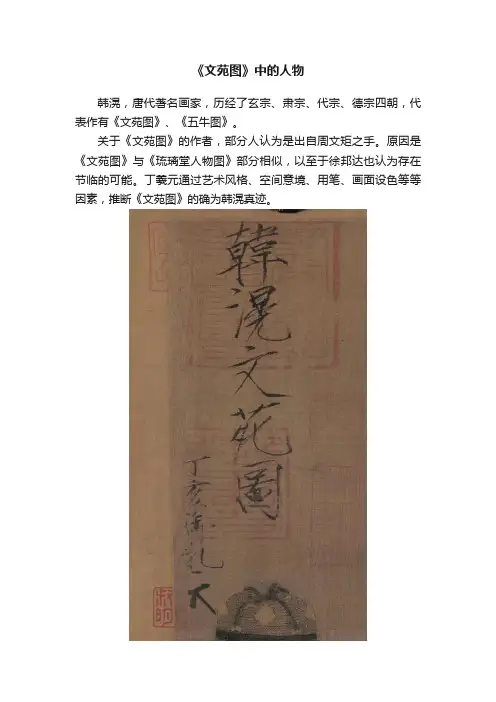 《文苑图》中的人物
韩滉，唐代著名画家，历经了玄宗、肃宗、代宗、德宗四朝，代
表作有《文苑图》、《五牛图》。
关于《文苑图》的作者，部分人认为是出自周文矩之手。原因是
《文苑图》与《琉璃堂人物图》部分相似，以至于徐邦达也认为存在
节临的可能。丁羲元通过艺术风格、空间意境、用笔、画面设色等等
因素，推断《文苑图》的确为韩滉真迹。
韓滉文苑圖
丁亥御札